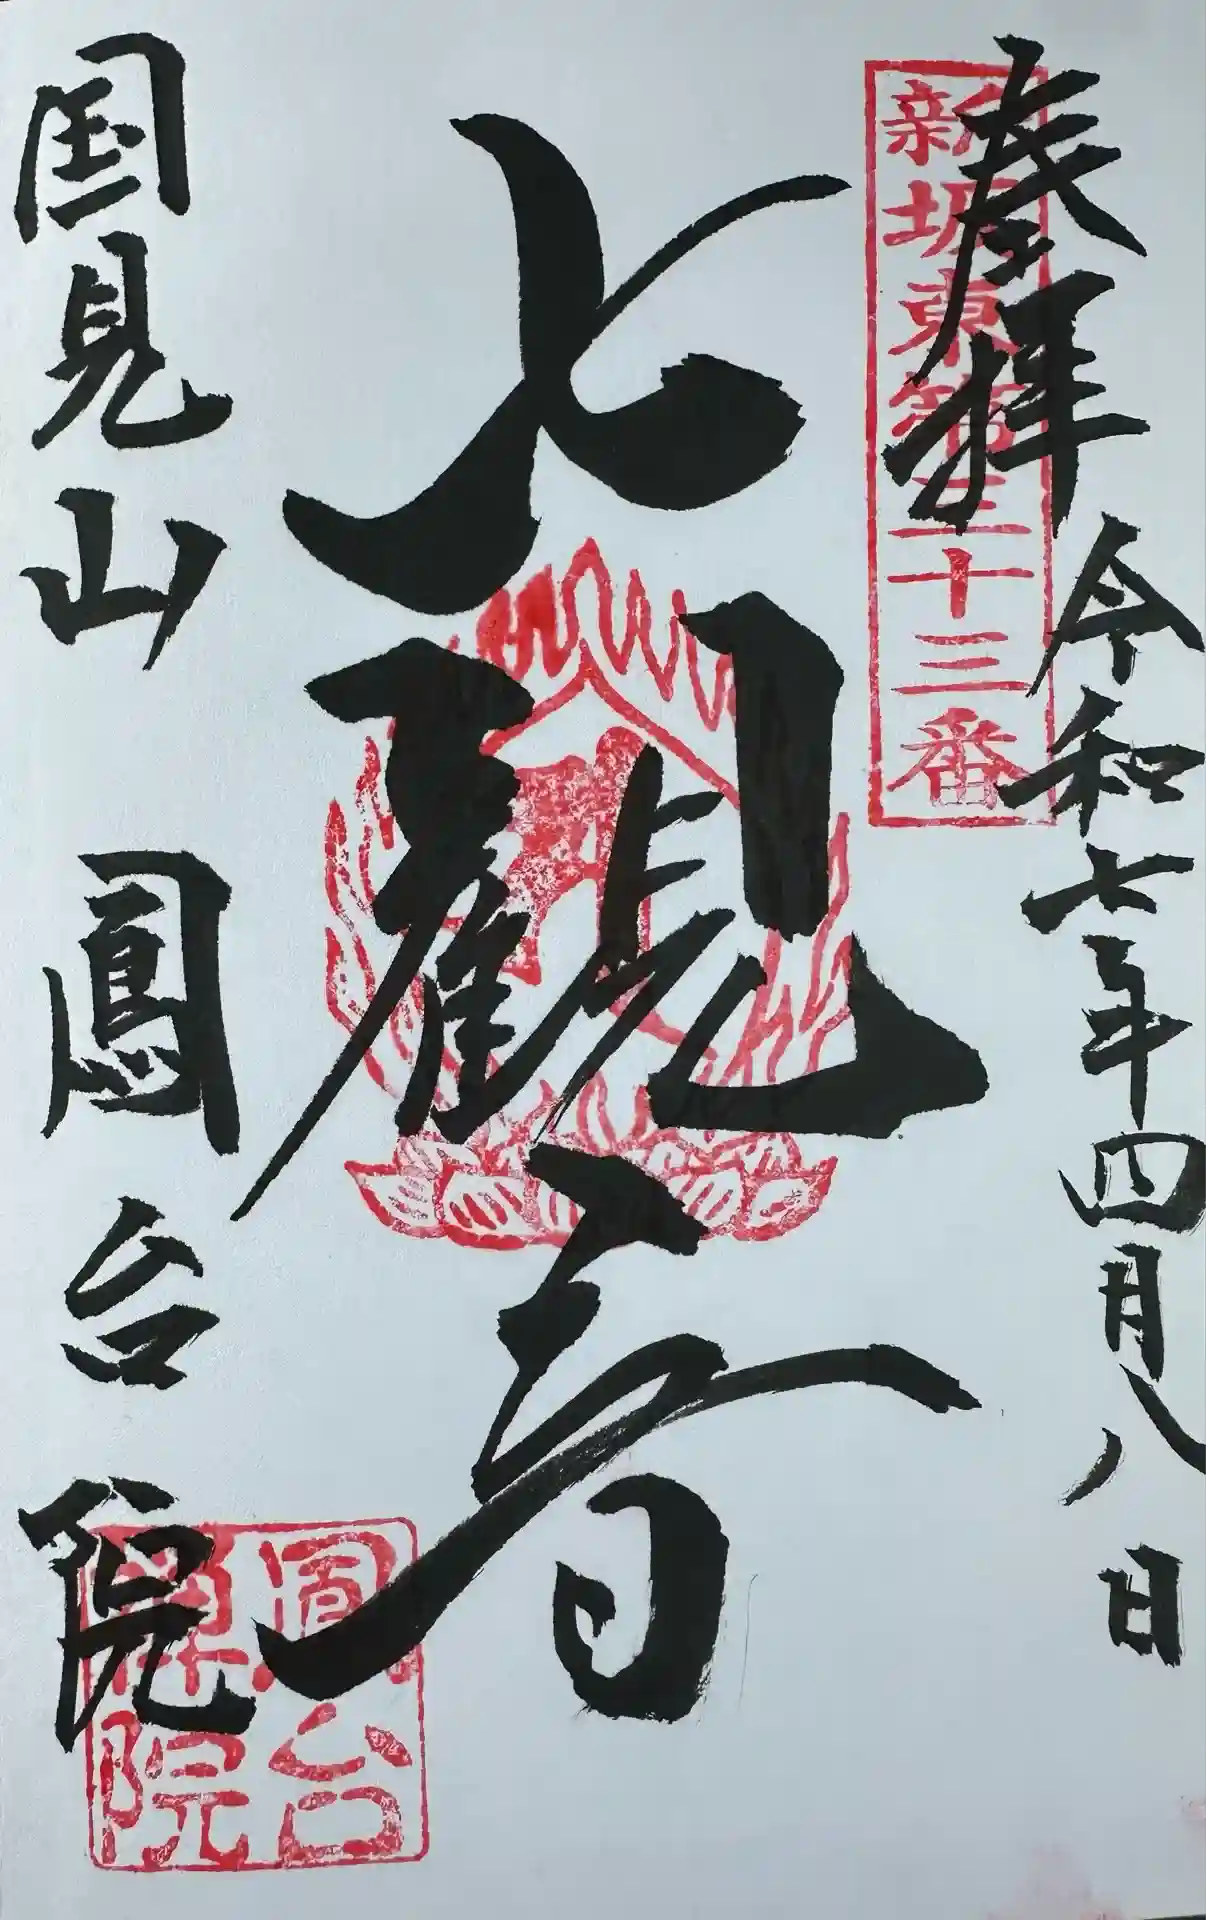 奉拝
令和七年四月八日
新坂東第三十三番
観音
国見山 鳳台院
鳳台
院